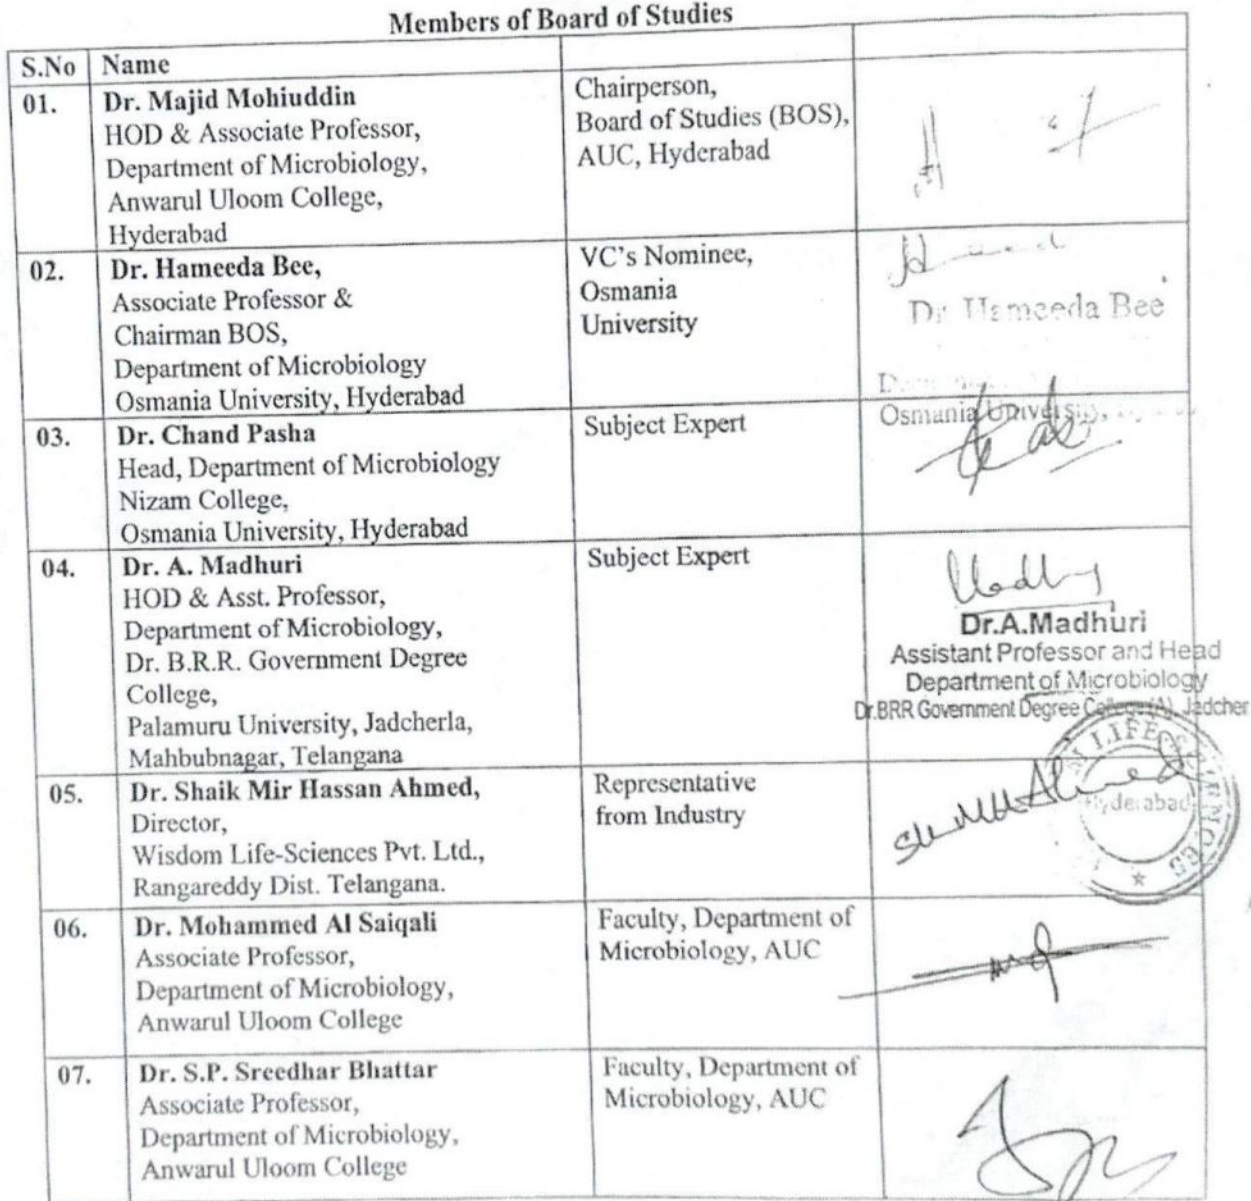 Members of Board of Studies
S.No Name
01. Dr. Majid Mohiuddin
HOD & Associate Professor,
Department of Microbiology,
Anwarul Uloom College,
Hyderabad
Chairperson,
Board of Studies (BOS),
AUC, Hyderabad
02. Dr. Hameeda Bee,
Associate Professor &
Chairman BOS,
Department of Microbiology
Osmania University, Hyderabad
VC's Nominee,
Osmania
University
Dr. Hameeda Bee
Osmania University,
03. Dr. Chand Pasha
Head, Department of Microbiology
Nizam College,
Osmania University, Hyderabad
Subject Expert
04. Dr. A. Madhuri
HOD & Asst. Professor,
Department of Microbiology,
Dr. B.R.R. Government Degree
College,
Palamuru University, Jadcherla,
Mahbubnagar, Telangana
Subject Expert
Dr.A.Madhuri
Assistant Professor and Head
Department of Microbiology
Dr.BRR Government Degree College (A), Jadcher
05. Dr. Shaik Mir Hassan Ahmed,
Director,
Wisdom Life-Sciences Pvt. Ltd.,
Rangareddy Dist. Telangana.
Representative
from Industry
LIFE SCIENCES
Hyderabad
06. Dr. Mohammed Al Saiqali
Associate Professor,
Department of Microbiology,
Anwarul Uloom College
Faculty, Department of
Microbiology, AUC
07. Dr. S.P. Sreedhar Bhattar
Associate Professor,
Department of Microbiology,
Anwarul Uloom College
Faculty, Department of
Microbiology, AUC